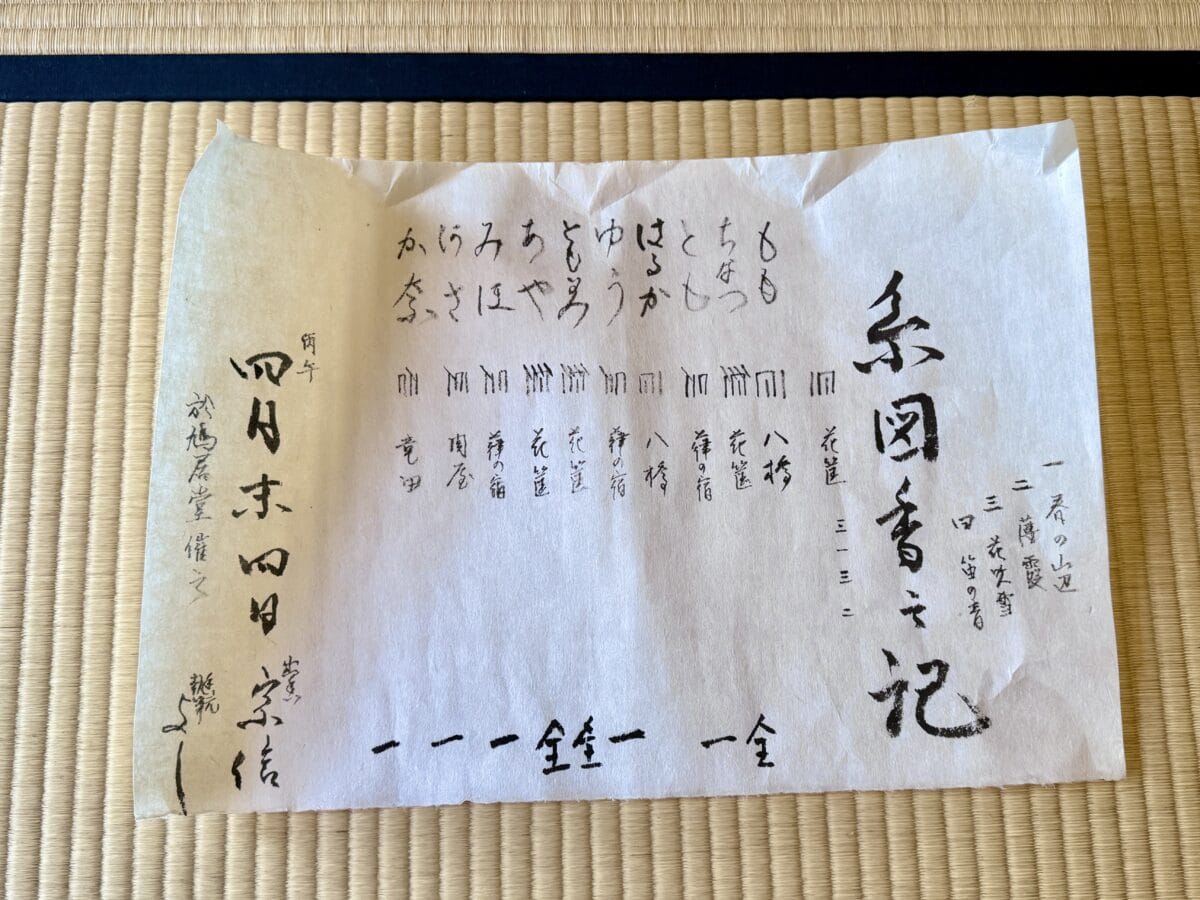 一 春の山辺
二 薄霞
三 花吹雪
四 笛の音
系図香之記
花筐 三一三二
もも 八橋
ちなつ 花筐 全
とも 葎の宿 一
はるか 八橋
ゆう 葎の宿 一
花筐 全
あや 花筐 全
みほ 葎の宿 一
関屋 一
か奈 竜田 一
丙午
四月末四日 出香 宗信
於鳩居堂催之 執筆 よし